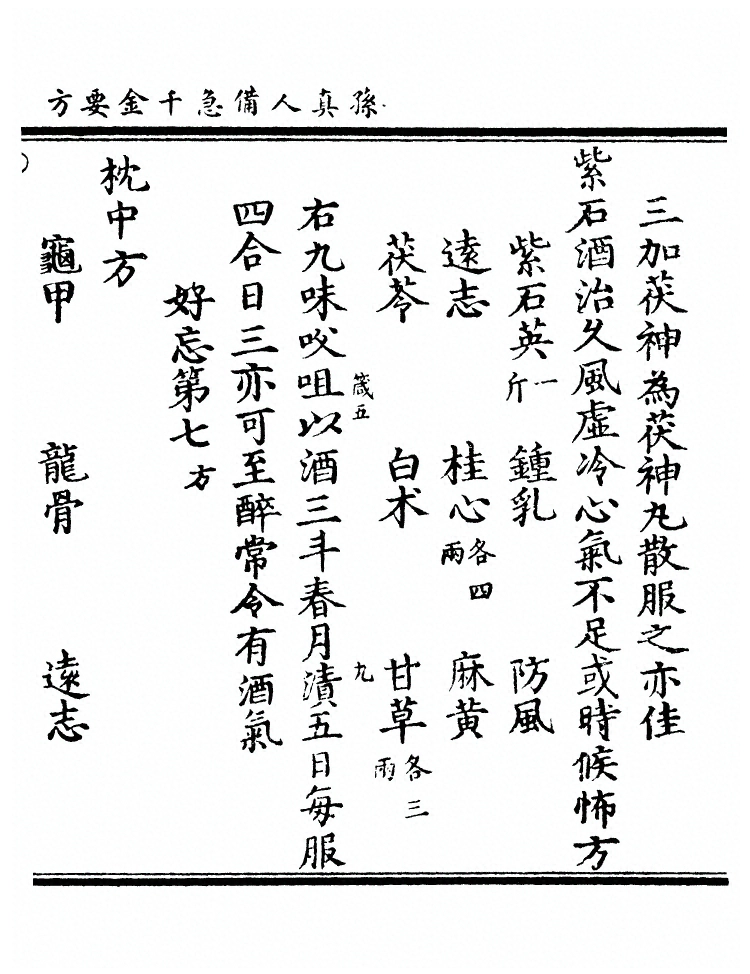 孫真人備急千金要方
三加茯神為茯神丸散服之亦佳
紫石酒治久風虛冷心氣不足或時候怖方
紫石英一斤 鍾乳 防風
遠志 桂心各四兩 麻黃
茯苓 白朮 甘草各三兩
箴五 九
右九味㕮咀以酒三斗春月漬五日每服
四合日三亦可至醉常令有酒氣
好忘第七方
枕中方
龜甲 龍骨 遠志